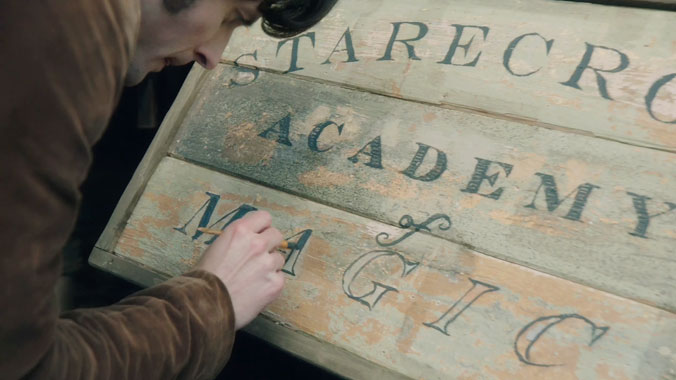 STARECRO
ACADEMY
of
MAGIC